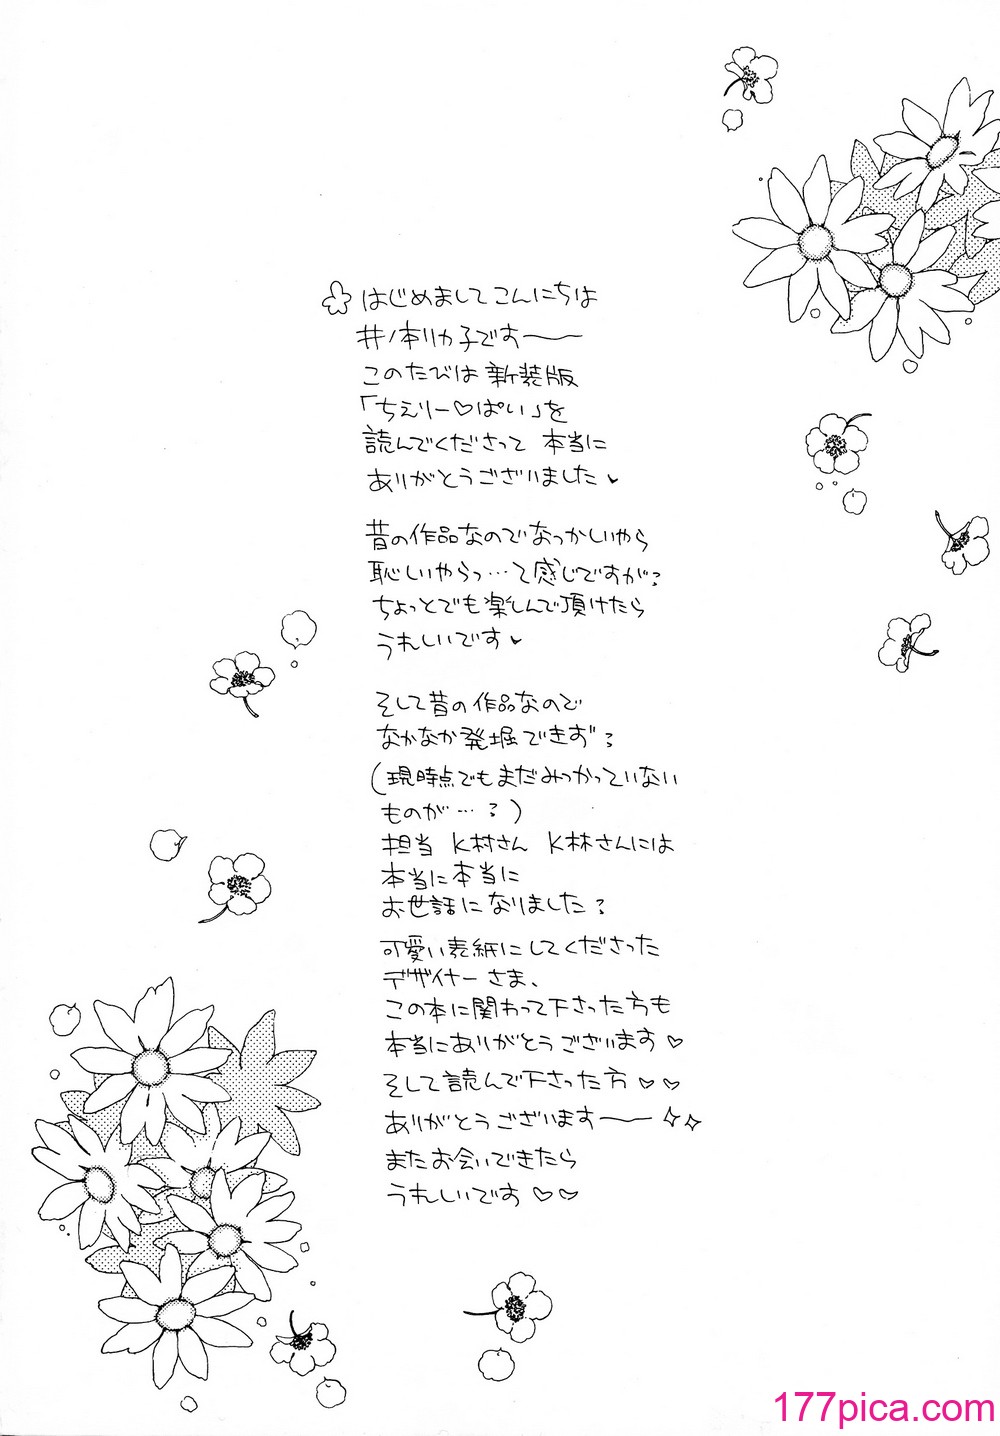 はじめまして こんにちは
井ノ本リカ子です〜
このたびは 新装版
「ちぇりー♡ぱい」を
読んでくださって 本当に
ありがとうございました♥
昔の作品なので なつかしいやら
恥しいやらっ…て感じですが
ちょっとでも楽しんで頂けたら
うれしいです♥
そして昔の作品なので
なかなか発掘できず
(現時点でもまだみつかっていない
ものが…)
担当 K村さん K林さんには
本当に本当に
お世話になりました
可愛い表紙にしてくださった
デザイナーさま、
この本に関わって下さった方も
本当にありがとうございます♡
そして読んで下さった方♡♡
ありがとうございます〜✧✧
またお会いできたら
うれしいです♡♡
177pica.com